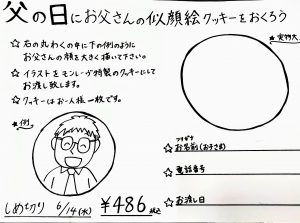 父の日にお父さんの似顔絵クッキーをおくろう
☆ 右の丸わくの中に下の例のように
お父さんの顔を大きく描いて下さい。
☆ イラストをモンレーヴ特製のクッキーにして
お渡し致します。
☆ クッキーはお一人様一枚です。
☆例
しめきり 6/14(水) ¥486税込
☆実物大
フリガナ
☆お名前(お子さま)
☆電話番号
☆お渡し日